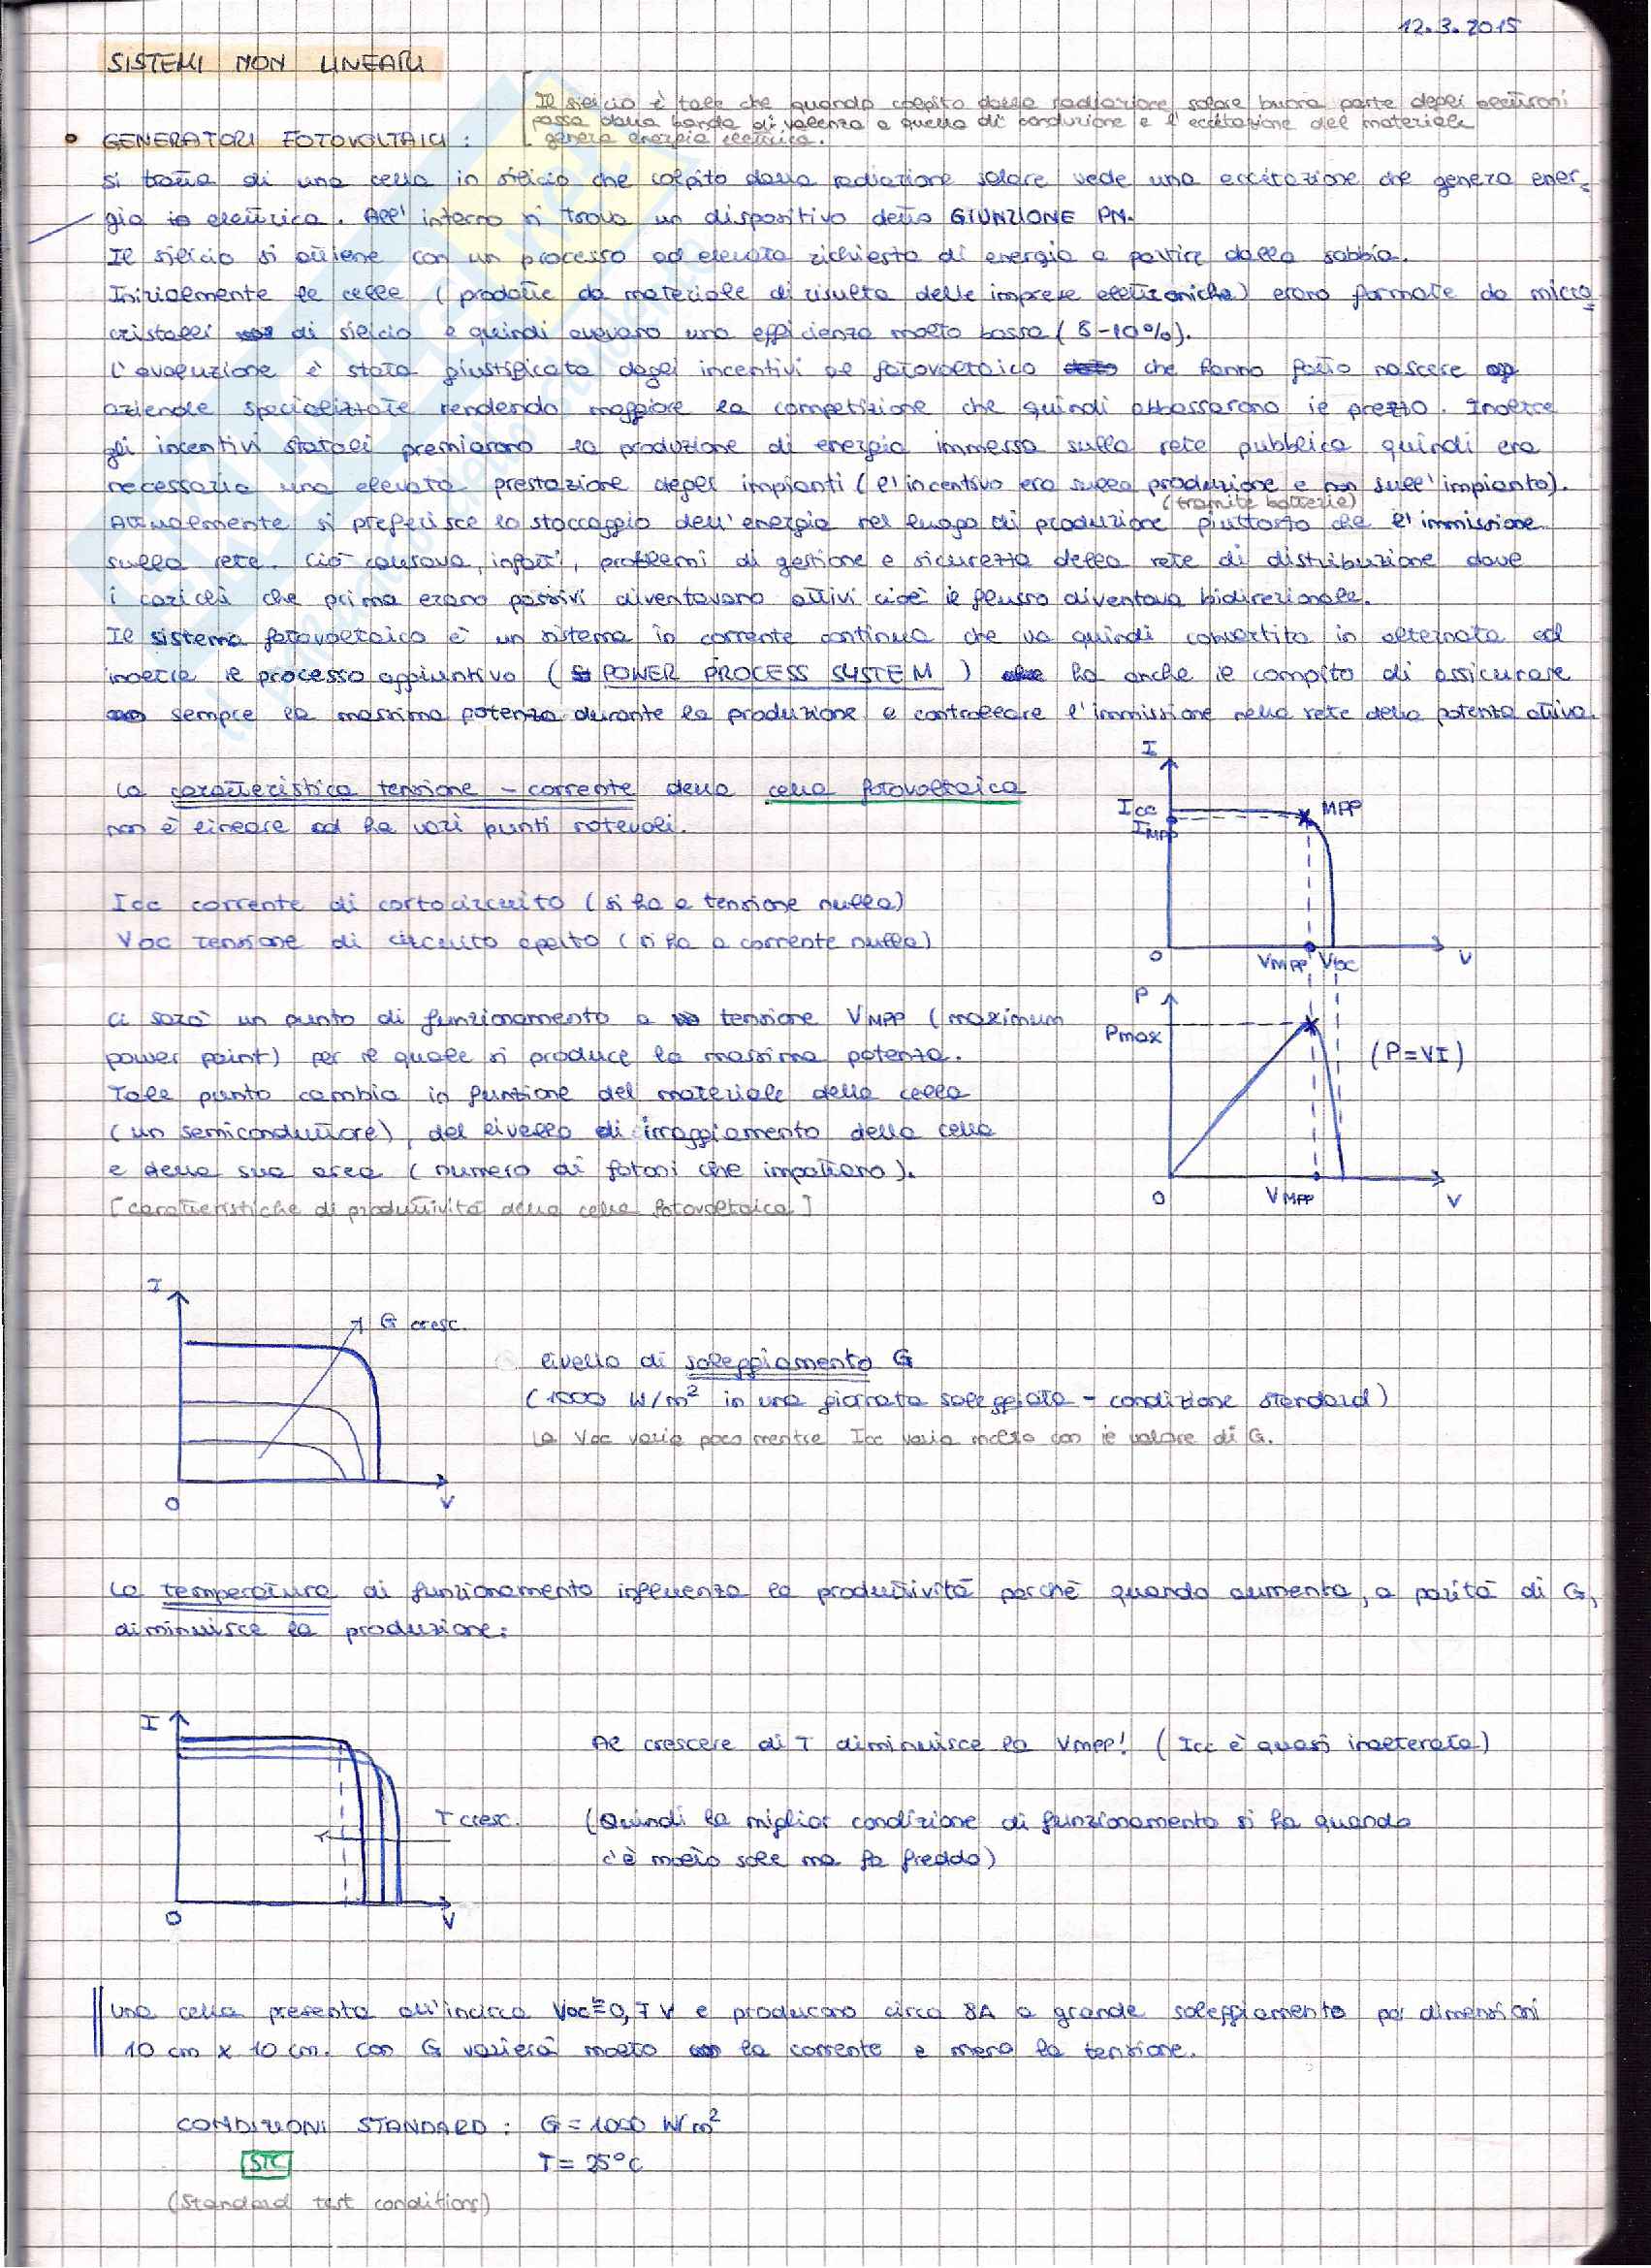 12.3.2015
SISTEMI NON LINEARI
Il silicio è tale che quando colpito dalla radiazione solare buona parte degli elettroni
passa dalla banda di valenza a quella di conduzione e l'eccitazione del materiale
genera energia elettrica.
• GENERATORI FOTOVOLTAICI :
Si tratta di una cella in silicio che colpito dalla radiazione solare vede una eccitazione che genera ener-
gia elettrica. All'interno si trova un dispositivo detto GIUNZIONE PN.
Il silicio si ottiene con un processo ad elevata richiesta di energia a partire dalla sabbia.
Inizialmente le celle (prodotte da materiale di risulta delle imprese elettroniche) erano formate da micro
cristalli di silicio e quindi avevano una efficienza molto bassa (8-10%).
L'evoluzione è stata giustificata dagli incentivi al fotovoltaico che hanno fatto nascere
aziende specializzate rendendo maggiore la competizione che quindi abbassarono il prezzo. Inoltre
gli incentivi statali premiarono la produzione di energia immessa sulla rete pubblica quindi era
necessaria una elevata prestazione degli impianti (l'incentivo era sulla produzione e non sull'impianto).
(tramite batterie)
Attualmente si preferisce lo stoccaggio dell'energia nel luogo di produzione piuttosto che l'immissione
sulla rete. Ciò causava, infatti, problemi di gestione e sicurezza della rete di distribuzione dove
i carichi che prima erano passivi diventavano attivi cioè il flusso diventava bidirezionale.
Il sistema fotovoltaico è un sistema in corrente continua che va quindi convertita in alternata ed
inoltre il processo aggiuntivo ( POWER PROCESS SYSTEM ) ha anche il compito di assicurare
sempre la massima potenza durante la produzione e controllare l'immissione nella rete della potenza attiva.
La caratteristica tensione - corrente della cella fotovoltaica
non è lineare ed ha vari punti notevoli.
I
Icc
IMPP
MPP
0
VMPP VOC
V
Icc corrente di cortocircuito (si ha a tensione nulla)
Voc tensione di circuito aperto (si ha a corrente nulla)
P
Pmax
(P=VI)
0
VMPP
V
Ci sarà un punto di funzionamento a tensione VMPP (maximum
power point) per il quale si produce la massima potenza.
Tale punto cambia in funzione del materiale della cella
(un semiconduttore), del livello di irraggiamento della cella
e della sua area (numero di fotoni che impattano).
[caratteristiche di produttività della cella fotovoltaica]
I
G cresc.
0
V
livello di soleggiamento G
(1000 W/m² in una giornata soleggiata - condizione standard)
La Voc varia poco mentre Icc varia molto con il valore di G.
La temperatura di funzionamento influenza la produttività perchè quando aumenta, a parità di G,
diminuisce la produzione:
I
T cresc.
0
V
Al crescere di T diminuisce la VMPP! (Icc è quasi inalterata)
(Quindi la miglior condizione di funzionamento si ha quando
c'è molto sole ma fa freddo)
una cella presenta all'incirca Voc≅0,7 V e producono circa 8A a grande soleggiamento per dimensioni
10 cm x 10 cm. Con G varierà molto la corrente e meno la tensione.
CONDIZIONI STANDARD : G = 1000 W/m²
STC
T = 25°C
(Standard test conditions)